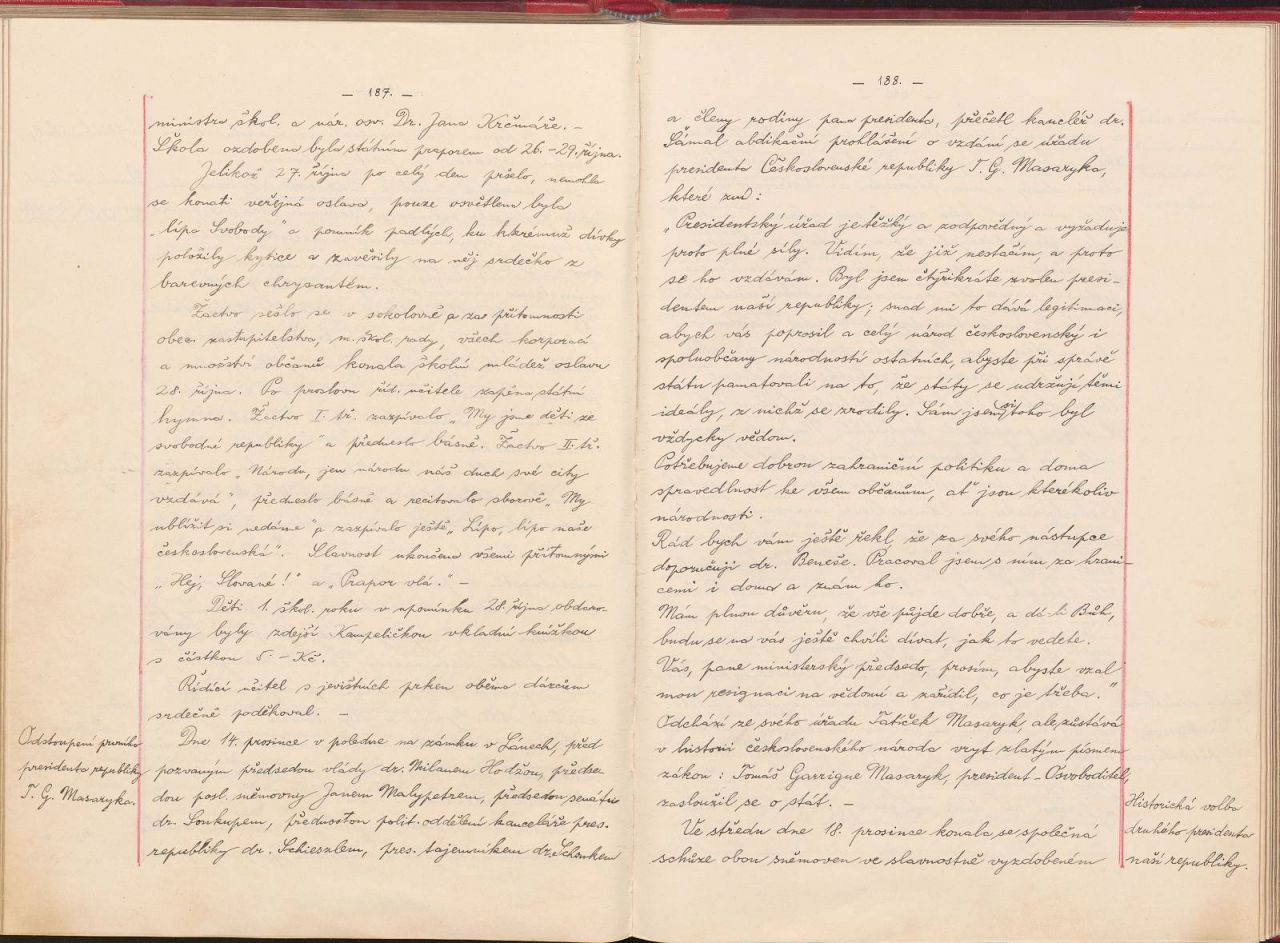 — 187. —
ministra škol. a nár. osv. Dr. Jana Krčmáře. —
Škola ozdobena byla státním praporem od 26.–29. října.
Jelikož 27. října po celý den pršelo, nemohla
se konati veřejná oslava, pouze osvětlena byla
„lípa Svobody" a pomník padlých, ku kterémuž dívky
položily kytice a zavěsily na něj srdečko z
barevných chrysantém.
Žactvo sešlo se v sokolovně a za přítomnosti
obec. zastupitelstva, m. škol. rady, všech korporací
a množství občanů konala školní mládež oslavu
28. října. Po proslovu říd. učitele zapěna státní
hymna. Žactvo I. tř. zazpívalo „My jsme děti ze
svobodné republiky" a předneslo básně. Žactvo II. tř.
zazpívalo „Národu, jen národu náš duch své city
vzdává", předneslo básně a recitovalo sborově „My
ublížit si nedáme" a zazpívalo ještě „Lípo, lípo naše
československá". Slavnost ukončena všemi přítomnými
„Hej, Slované!" a „Prapor vlá." —
Děti 1. škol. roku v upomínku 28. října obdaro-
vány byly zdejší Kampeličkou vkladní knížkou
s částkou 5.– Kč.
Řídící učitel s jevištních prken oběma dárcům
srdečně poděkoval. —
Odstoupení prvního
presidenta republiky
T. G. Masaryka.
Dne 14. prosince v poledne na zámku v Lánech, před
pozvaným předsedou vlády dr. Milanem Hodžou, předse-
dou posl. sněmovny Janem Malypetrem, předsedou senátu
dr. Soukupem, přednostou polit. oddělení kanceláře pres.
republiky dr. Schieszlem, pres. tajemníkem dr. Schenkem
— 188. —
a členy rodiny pana presidenta, přečetl kancléř dr.
Šámal abdikační prohlášení o vzdání se úřadu
presidenta Československé republiky T. G. Masaryka,
které zní:
„Presidentský úřad je těžký a zodpovědný a vyžaduje
proto plné síly. Vidím, že již nestačím, a proto
se ho vzdávám. Byl jsem čtyřikráte zvolen presi-
dentem naší republiky; snad mi to dává legitimaci,
abych vás poprosil a celý národ československý i
spoluobčany národností ostatních, abyste při správě
státu pamatovali na to, že státy se udržují těmi
ideály, z nichž se zrodily. Sám jsem si toho byl
vždycky vědom.
Potřebujeme dobrou zahraniční politiku a doma
spravedlnost ke všem občanům, ať jsou kterékoliv
národnosti.
Rád bych vám ještě řekl, že za svého nástupce
doporučuji dr. Beneše. Pracoval jsem s ním za hrani-
cemi i doma a znám ho.
Mám plnou důvěru, že vše půjde dobře, a dá-li Bůh,
budu se na vás ještě chvíli dívat, jak to vedete.
Vás, pane ministerský předsedo, prosím, abyste vzal
mou resignaci na vědomí a zařídil, co je třeba."
Odchází ze svého úřadu Tatíček Masaryk, ale zůstává
v historii československého národa vryt zlatým písmem
zákon: Tomáš Garrigue Masaryk, president – Osvoboditel,
zasloužil se o stát. —
Historická volba
druhého presidenta
naší republiky.
Ve středu dne 18. prosince konala se společná
schůze obou sněmoven ve slavnostně vyzdobeném